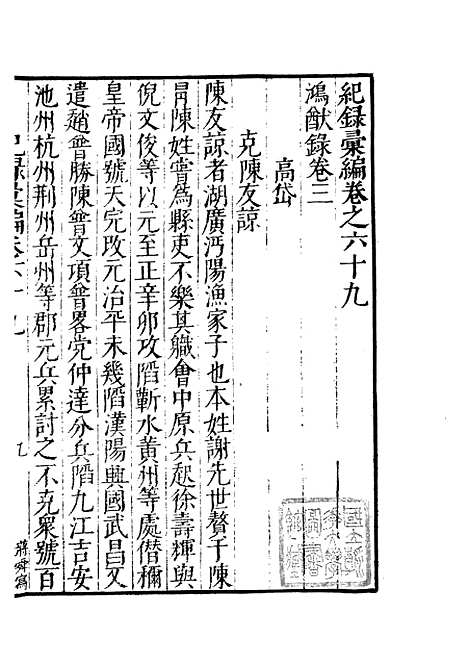 紀録彚編卷之六十九
鴻猷錄卷三
高岱
克陳友諒
陳友諒者湖廣沔陽漁家子也本姓謝先世贅于陳
冐陳姓嘗為縣吏不樂其職會中原兵起徐壽輝與
倪文俊等以元至正辛卯攻陷蘄水黃州等處僭稱
皇帝國號天完改元治平未幾陷漢陽興國武昌又
遣趙普勝陳普文項普畧党仲達分兵陷九江吉安
池州杭州荆州岳州等郡元兵累討之不克衆號百
蔣舜寫